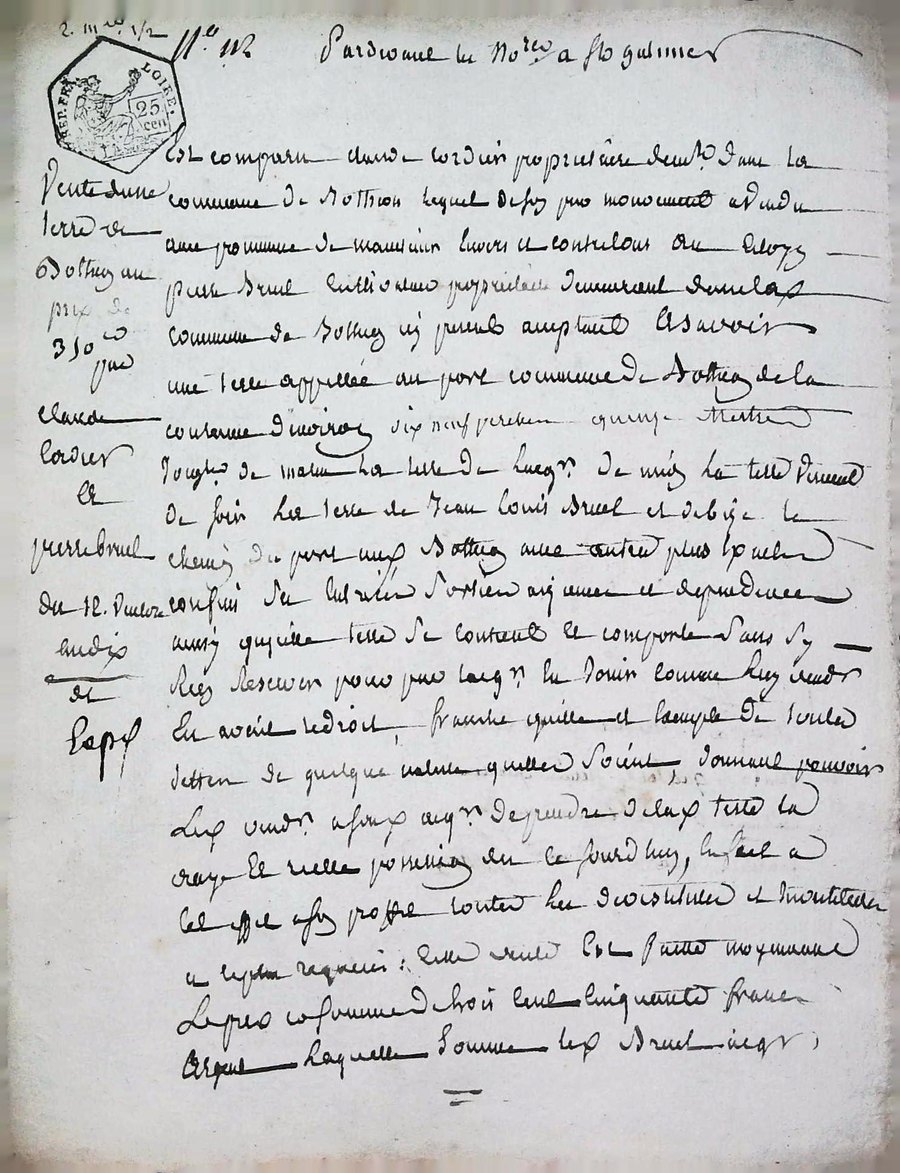 N.º 112 Pardevant les No.res a St galmier
REP. FRA. LOIRE.
25
cen
Vente d'une
terre de
Botheon au
prix de
350
par
Claude
Cordier
a
pierre bruel
du 12.
an dix
et
Est comparu claude Cordier proprietaire demt dans la
commune de Botheon lequel de son pur mouvement a vendu
avec promesse de maintenir envers et contre tous au citoyen
pierre Bruel cultivateur propriétaire demeurant dans la
commune de Botheon cy present acceptant asavoir
une terre appellée au port commune de Botheon de la
contenue d'environ dix neuf perches quinze mettres
de matin la terre de l'acqr. de midy la terre
de soir la terre de Jean Louis Bruel et de bize le
chemin du port aux Botheon avec autres plus
confins ses entrées sorties aizances et dependances
ainsy qu'icelle terre se contient et comporte sans s'y
rien reserver pour par l'acqr. en jouir comme le vendr
en avoit le droit, franche quitte et exempte de toutes
dettes de quelque nature quelles soient donnant pouvoir
le vendr. a acqr. de prendre de la terre la
vraye et réelle possession des ce jourdhuy, luy fait a
cet effet a son proffit toutes les devestitures et investitures
a ce requises: cette vente est faitte moyennant
le prix et somme de trois cent cinquante francs
laquelle somme le Bruel acqr